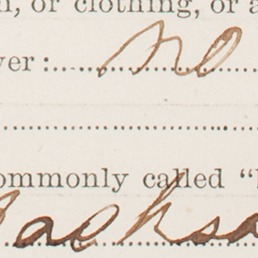 , or clothing, or a
ver: No
ommonly called "
Jackso